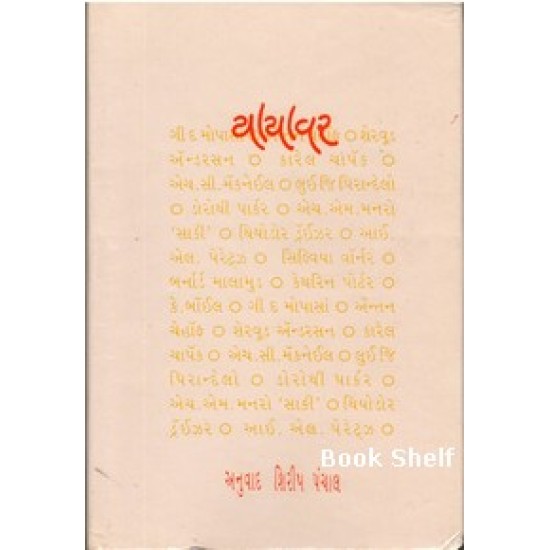 યાયાવર
ગી દ મોપાસાં શેરવુડ
ઍન્ડરસન કારેલ ચાપૅક
એચ.સી.મૅકનેઈલ લુઈજિ પિરાન્દેલો
ડોરોથી પાર્કર એચ.એમ.મનરો
'સાકી' થિયોડોર ડ્રૅઈઝર આઈ.
એલ. પેરેટ્ઝ સિલ્વિયા વૉર્નર
બર્નાર્ડ માલામુડ કેથરિન પોર્ટર
કે.બૉઈલ ગી દ મોપાસાં ઍન્તન
ચેહૉફ શેરવુડ ઍન્ડરસન કારેલ
ચાપૅક એચ.સી.મૅકનેઈલ લુઈજિ
પિરાન્દેલો ડોરોથી પાર્કર
એચ.એમ.મનરો 'સાકી' થિયોડોર
ડ્રૅઈઝર આઈ. એલ. પેરેટ્ઝ
Book Shelf
અનુવાદ શિરીષ પંચાલ